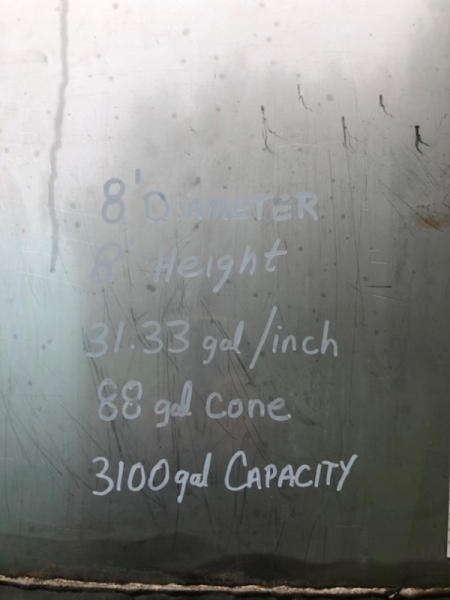 8' DIAMETER
8' Height
31.33 gal/inch
88 gal cone
3100 gal CAPACITY